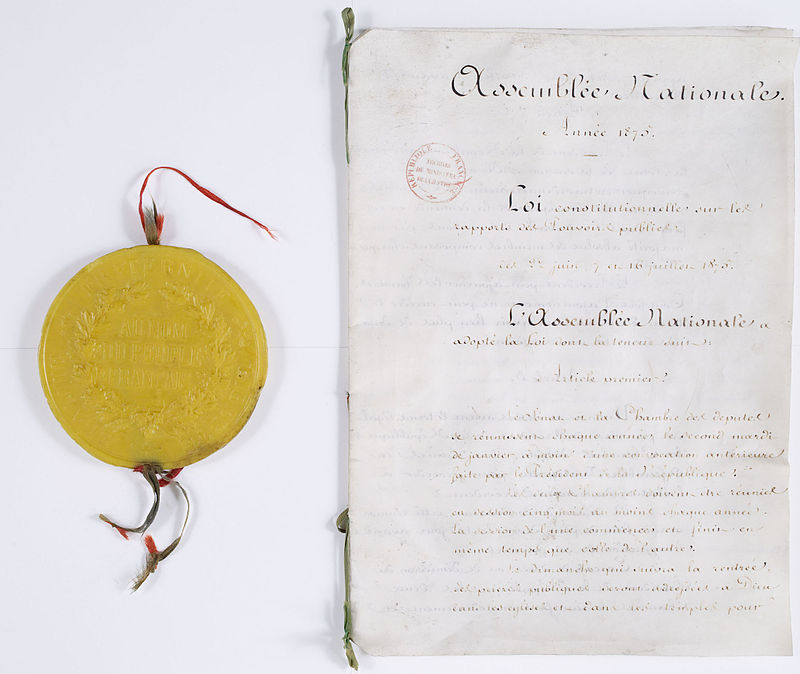 AU NOM
DU PEUPLE
FRANÇAIS
Assemblée Nationale.
Année 1875.
RÉPUBLIQUE FRANÇAISE
ARCHIVES
DU MINISTÈRE
DE LA JUSTICE
Loi constitutionnelle sur les
rapports des Pouvoirs publics.
des 22 juin, 7 et 16 juillet 1875.
L'Assemblée Nationale a
adopté la Loi dont la teneur suit :
Article premier.
Le Sénat et la Chambre des députés
se réunissent chaque année, le second mardi
de janvier, à moins d'une convocation antérieure
faite par le Président de la République.
Les deux Chambres doivent être réunies
en session cinq mois au moins chaque année.
La session de l'une commence et finit en
même temps que celle de l'autre.
Le dimanche qui suivra la rentrée,
des prières publiques seront adressées à Dieu
dans les églises et dans les temples pour